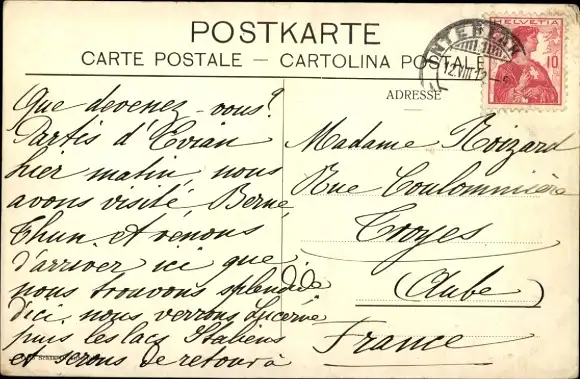 POSTKARTE
CARTE POSTALE — CARTOLINA POSTALE
HELVETIA
10
12.VIII.12
ADRESSE
Que devenez-vous?
Partis d'Evian
hier matin, nous
avons visité Berne,
Thun, et venons
d'arriver ici que
nous trouvons splendide
d'ici, nous verrons Lucerne
puis les lacs Italiens
et serons de retour à
Madame Noizard
Rue Coulommière
Troyes
(Aube)
France